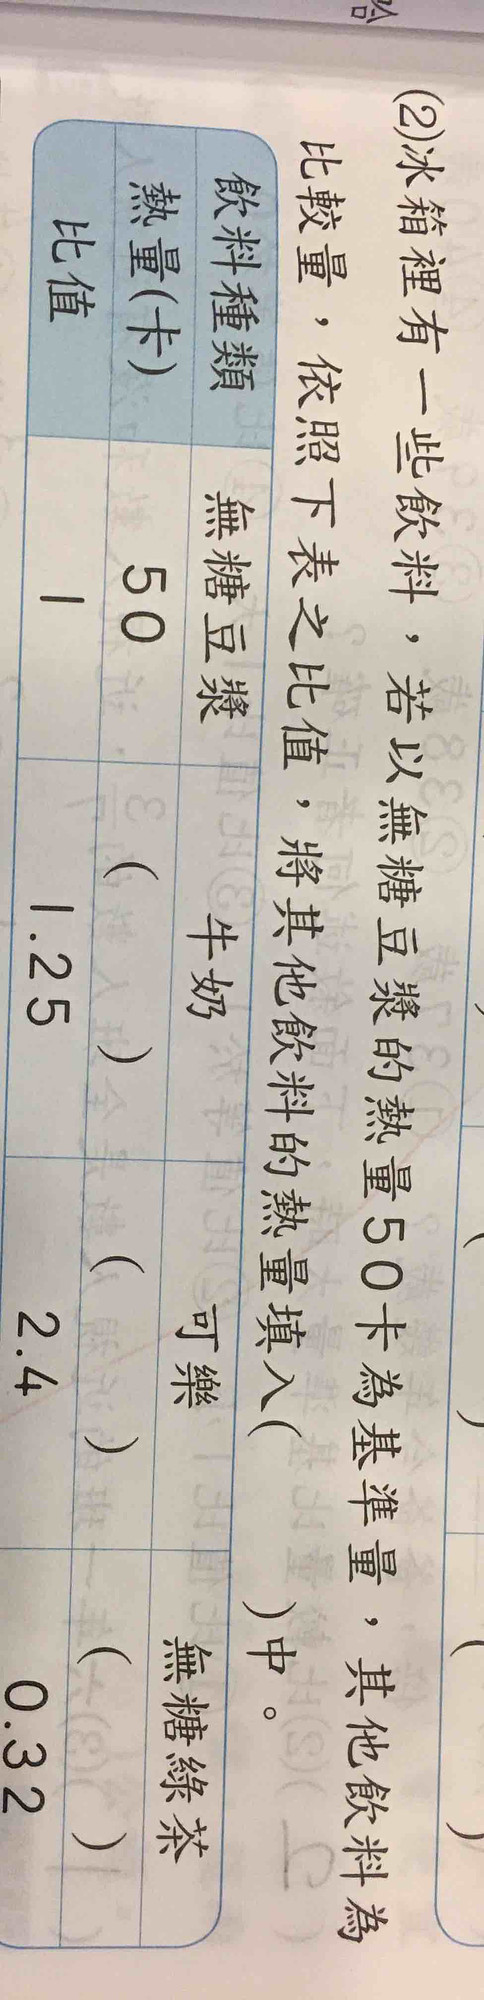 (2)冰箱裡有一些飲料，若以無糖豆漿的熱量50卡為基準量，其他飲料為
比較量，依照下表之比值，將其他飲料的熱量填入(　　)中。
飲料種類 無糖豆漿 牛奶 可樂 無糖綠茶
熱量(卡) 50 (　　) (　　) (　　)
比值 1 1.25 2.4 0.32